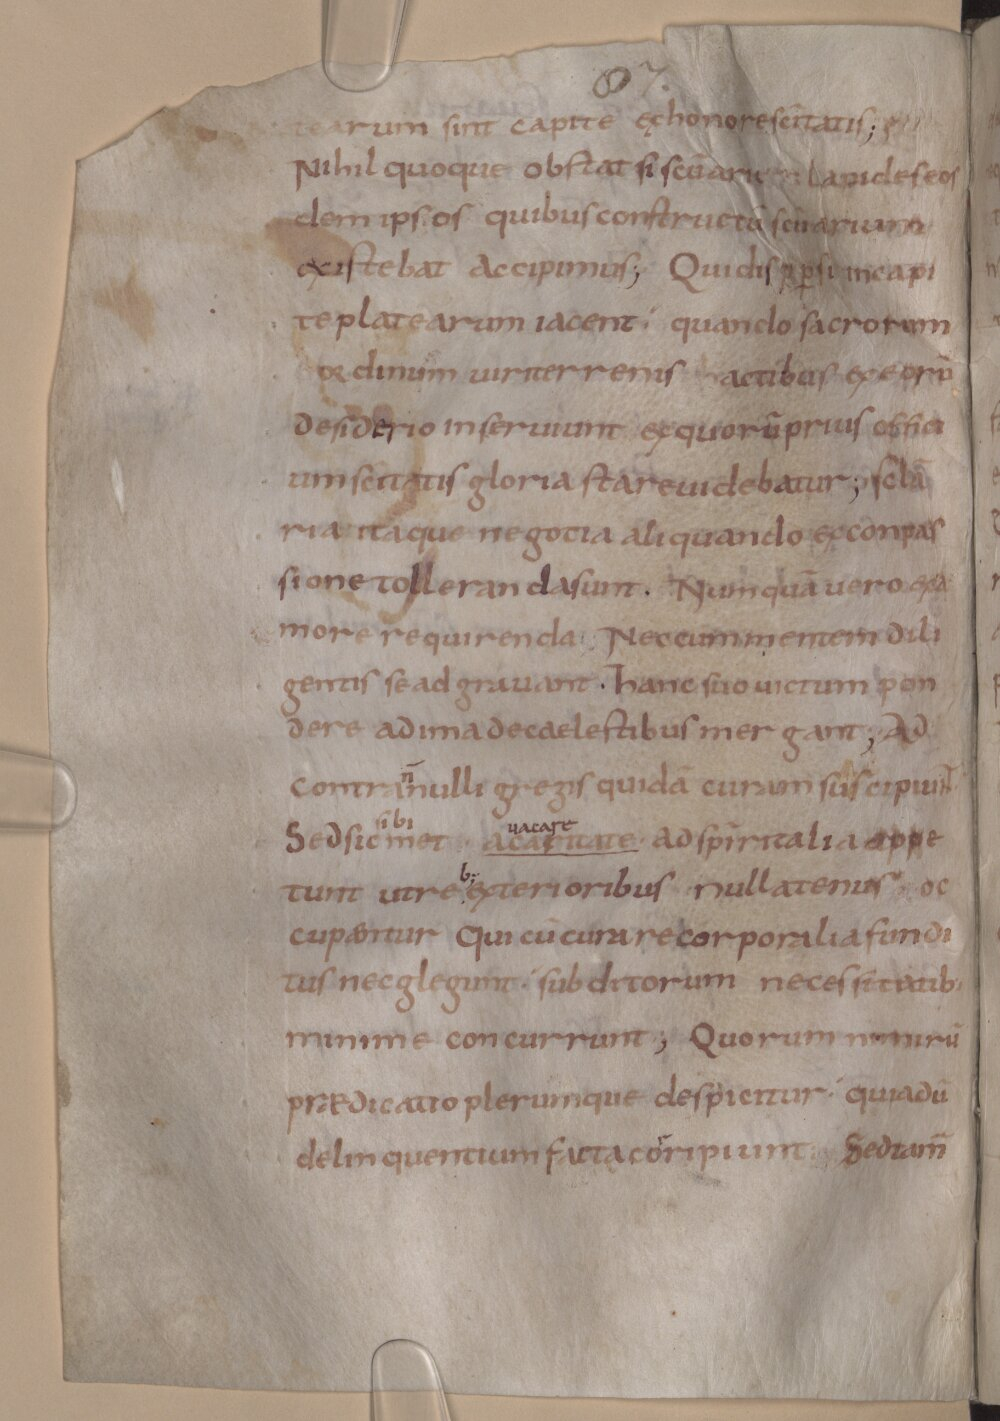 87.
tearum sint capite & honore sc̄itatis;
Nihil quoque obstat si sc̄uarii lapides eos
dem ipsos quibus constructū sc̄uarium
existebat accipimus; Qui dispersi in capi
te platearum iacent; quando sacrorum
ordinum uiri terrenis actibus ex eorū
desiderio inseruiunt ex quorū prius offici
um sc̄itatis gloria stare uidebatur; sclā
ria itaque negotia aliquando ex conpas
sione tolleranda sunt. Numquā uero ex a
more requirenda; Ne cum mentem dili
gentis se adgrauant. hanc suo uictum pon
dere ad ima de caelestibus mergant; Ad
contra n̄ nulli gregis quidā curam suscipiun̄t
sibi uacare
Sed sic met acacitate ad sp̄iritalia appe
tunt ut re b; exterioribus nullatenus oc
cupantur Qui cū curare corporalia fundi
tus necglegunt; subditorum necessitatib;
minime concurrunt; Quorum nimirū
praedicatio plerumque despicitur; quia dū
delinquentium facta corripiunt Sed tam̄